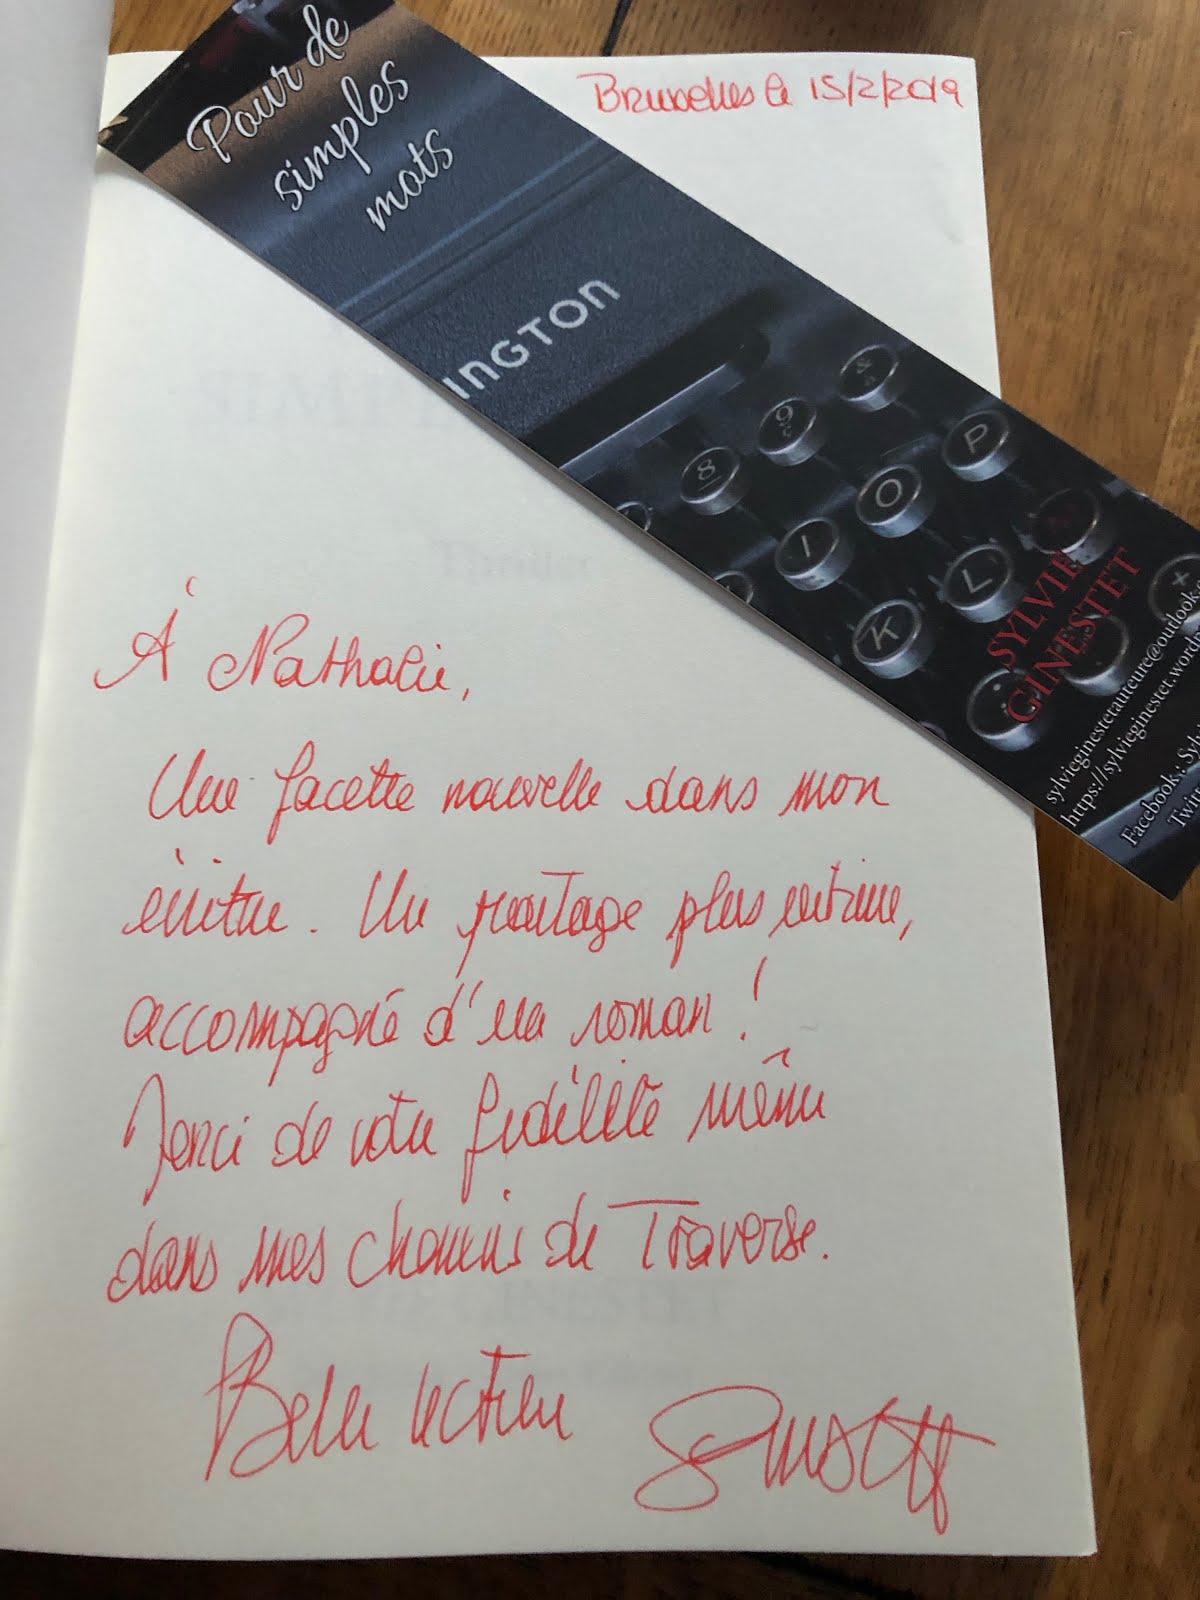 Bruxelles le 15/2/2019
Pour de
simples
mots
INGTON
8 9 &
I O P
K L
SYLVIE
GINESTET
sylvieginestetauteure@outlook.
https://sylvieginestet.wordp
Facebook : Sylvi
Twit
SIMPLE
Thriller
À Nathalie,
Une facette nouvelle dans mon
écriture. Un partage plus intime,
accompagné d'un roman !
Merci de votre fidélité même
dans mes chemins de Traverse.
GINESTET
Belle lecture